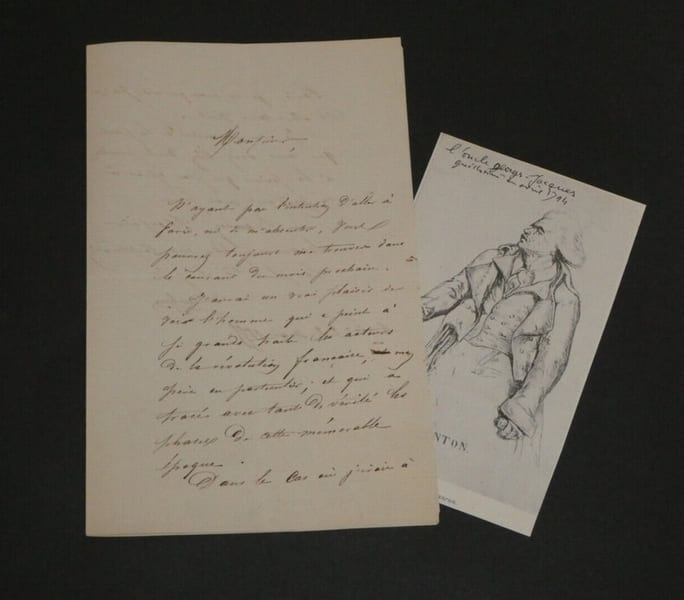 Monsieur
N'ayant pas l'intention d'aller à
Paris, ni de m'absenter, Vous
pourrez toujours me trouver dans
le courant du mois prochain.
J'aurai un vrai plaisir de
voir l'homme qui a peint à
si grands traits les acteurs
de la révolution française, et mon
père en particulier; et qui a
tracés avec tant de vérité les
phases de cette mémorable
époque.
Dans le cas où j'irais à
l'oncle georges-Jacques
guillotiné en avril 1794
NTON.